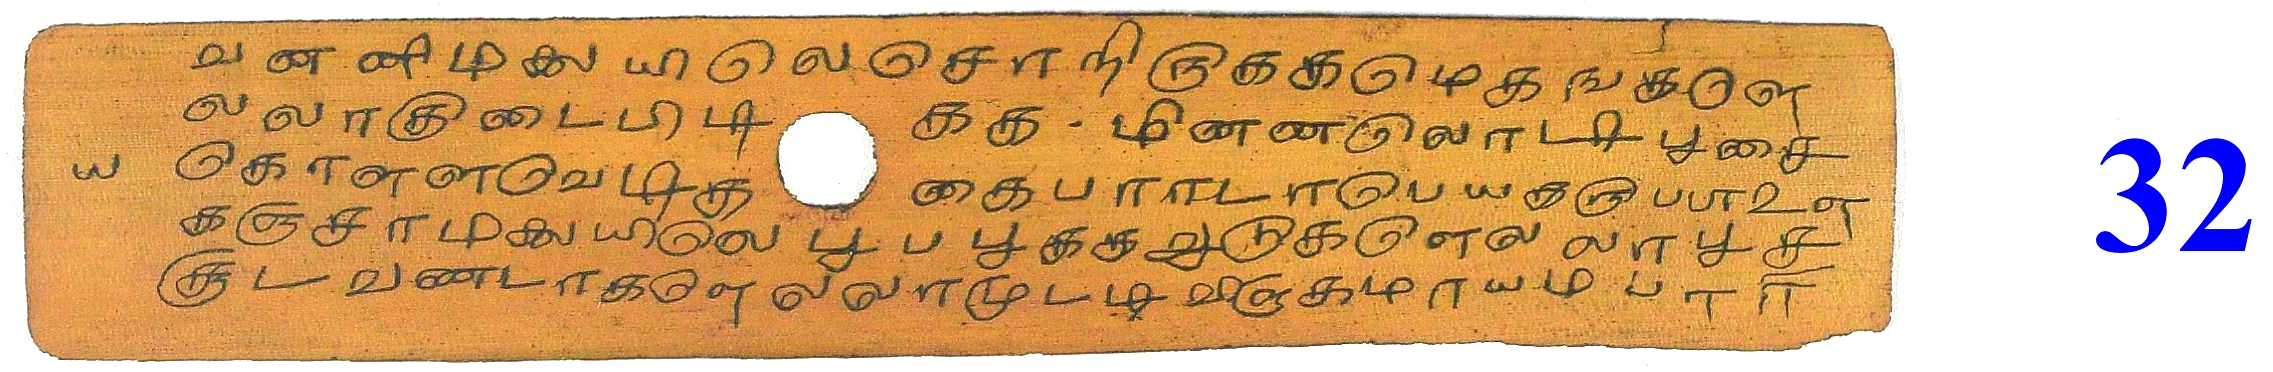 வனனிமலையிலெசொநிருககமெகஙகளெ
லலாகுடைபிடி கக - மினனலொடிபூசை
ய கொளளவெடிக கைபாராடாபெயகருபபாஉன
கருசாமலையிலெ பூபபூககஆடுகளெலலாபூச
குடவணடாகளெலலாமுடடிவிருகமாயமபார
32